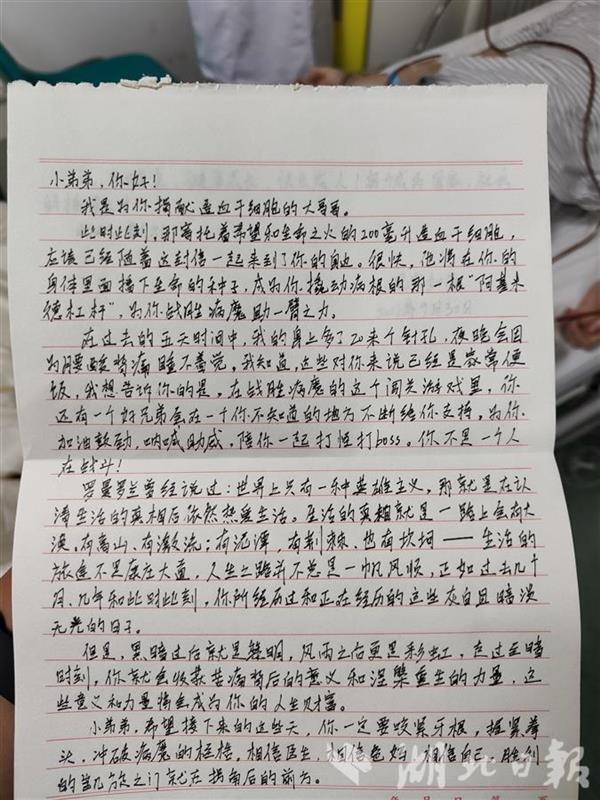 小弟弟，你好！
我是为你捐献造血干细胞的大哥哥。
此时此刻，那寄托着希望和生命之火的200毫升造血干细胞，
应该已经随着这封信一起来到了你的身边。很快，他将在你的
身体里面播下生命的种子，成为你撬动病根的那一根“阿基米
德杠杆”，为你战胜病魔助一臂之力。
在过去的五天时间中，我的身上多了20来个针孔，夜晚会因
为腰酸背痛睡不着觉。我知道，这些对你来说已经是家常便
饭，我想告诉你的是，在战胜病魔的这个闯关游戏里，你
还有一个好兄弟会在一个你不知道的地方不断给你支持，为你
加油鼓劲，呐喊助威，陪你一起打怪打boss。你不是一个人
在战斗！
罗曼罗兰曾经说过：世界上只有一种英雄主义，那就是在认
清生活的真相后依然热爱生活。生活的真相就是一路上会有大
漠，有高山、有激流；有泥潭，有荆棘、也有坎坷——生活的
旅途不是康庄大道，人生之路并不总是一帆风顺，正如过去几个
月、几年和此时此刻，你所经历过和正在经历的这些灰白且暗淡
无光的日子。
但是，黑暗过后就是黎明，风雨之后更是彩虹，走过至暗
时刻，你就会收获苦痛背后的意义和涅槃重生的力量，这
些意义和力量将会成为你的人生财富。
小弟弟，希望接下来的这些天，你一定要咬紧牙根，握紧拳
头，冲破病魔的桎梏，相信医生，相信爸妈，相信自己，胜利
的凯旋之门就在拐角后的前方。
湖北日報